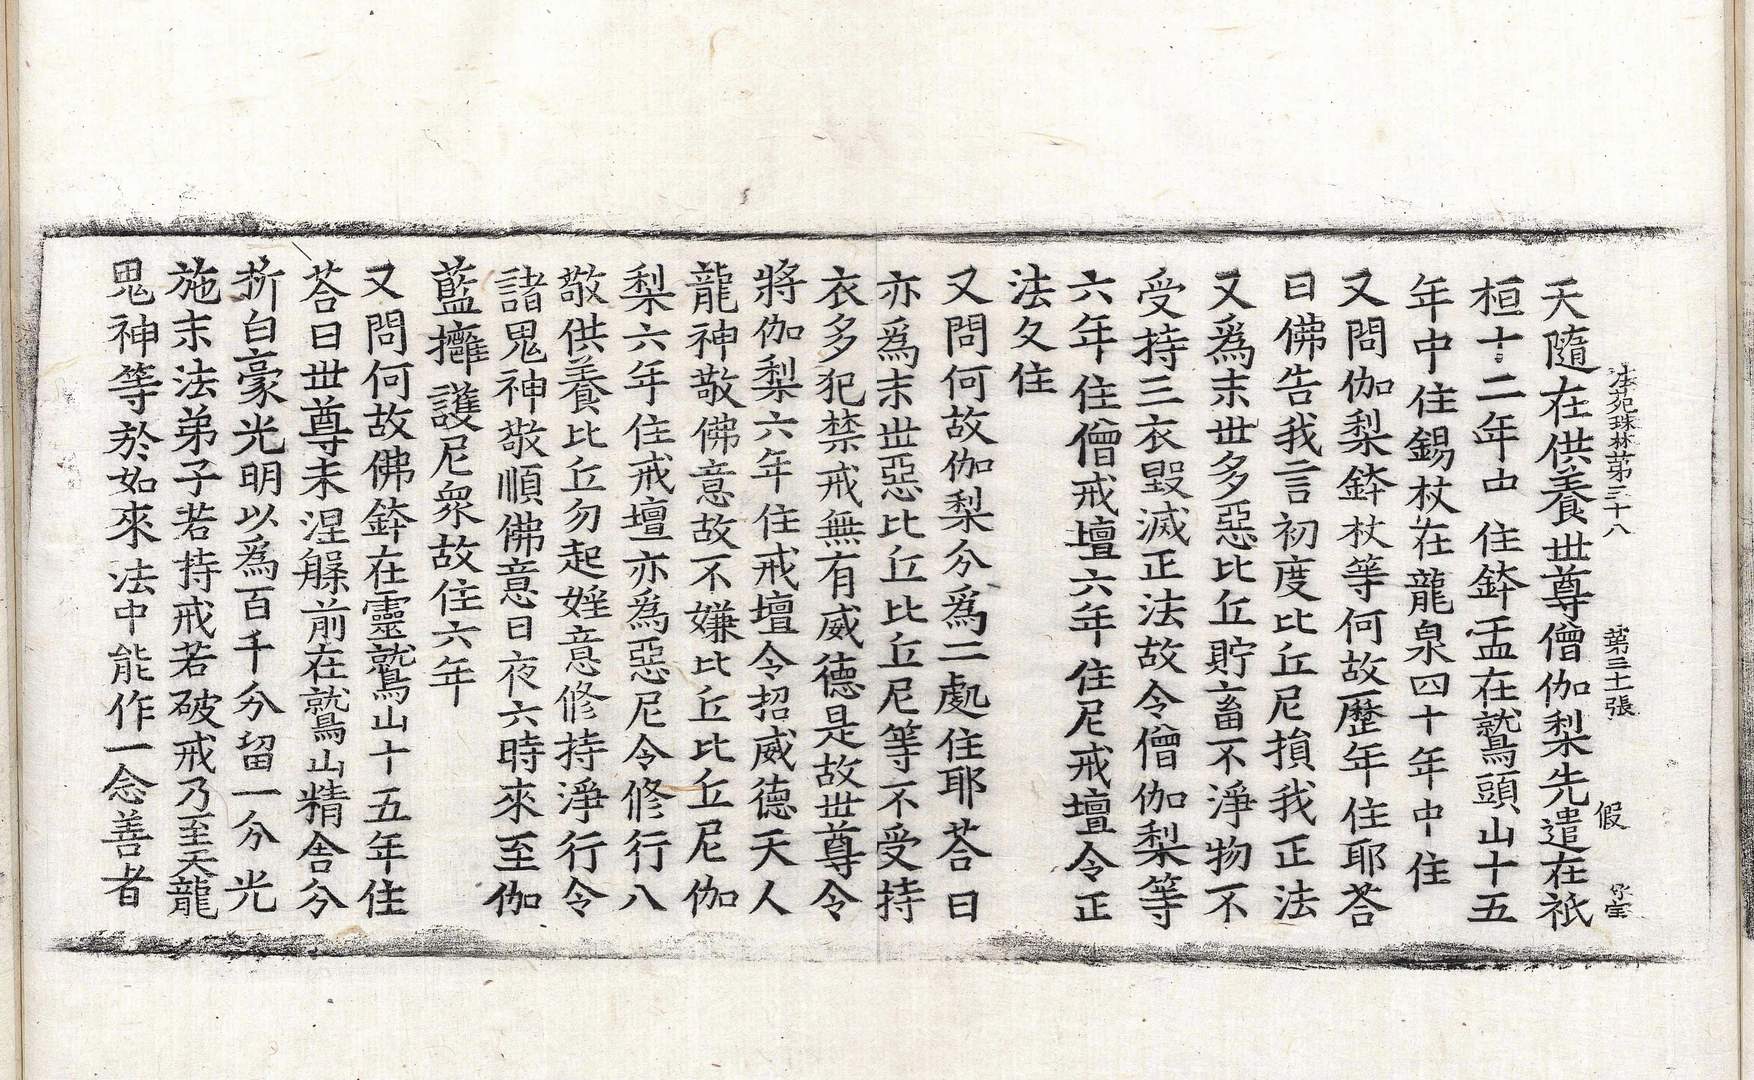 法苑珠林第三十八 第三十張 假 守宝
天隨在供養世尊僧伽梨先遣在祇
桓十二年中住鉢盂在鷲頭山十五
年中住錫杖在龍泉四十年中住
又問伽梨鉢杖等何故歷年住耶荅
曰佛告我言初度比丘尼損我正法
又爲末世多惡比丘貯畜不淨物不
受持三衣毀滅正法故令僧伽梨等
六年住僧戒壇六年住尼戒壇令正
法久住
又問何故伽梨分爲二處住耶荅曰
亦爲末世惡比丘比丘尼等不受持
衣多犯禁戒無有威德是故世尊令
將伽梨六年住戒壇令招威德天人
龍神敬佛意故不嫌比丘比丘尼伽
梨六年住戒壇亦爲惡尼令修行八
敬供養比丘勿起婬意修持淨行令
諸鬼神敬順佛意日夜六時來至伽
藍擁護尼衆故住六年
又問何故佛鉢在靈鷲山十五年住
荅曰世尊未涅槃前在鷲山精舍分
折白豪光明以爲百千分留一分光
施末法弟子若持戒若破戒乃至天龍
鬼神等於如來法中能作一念善者